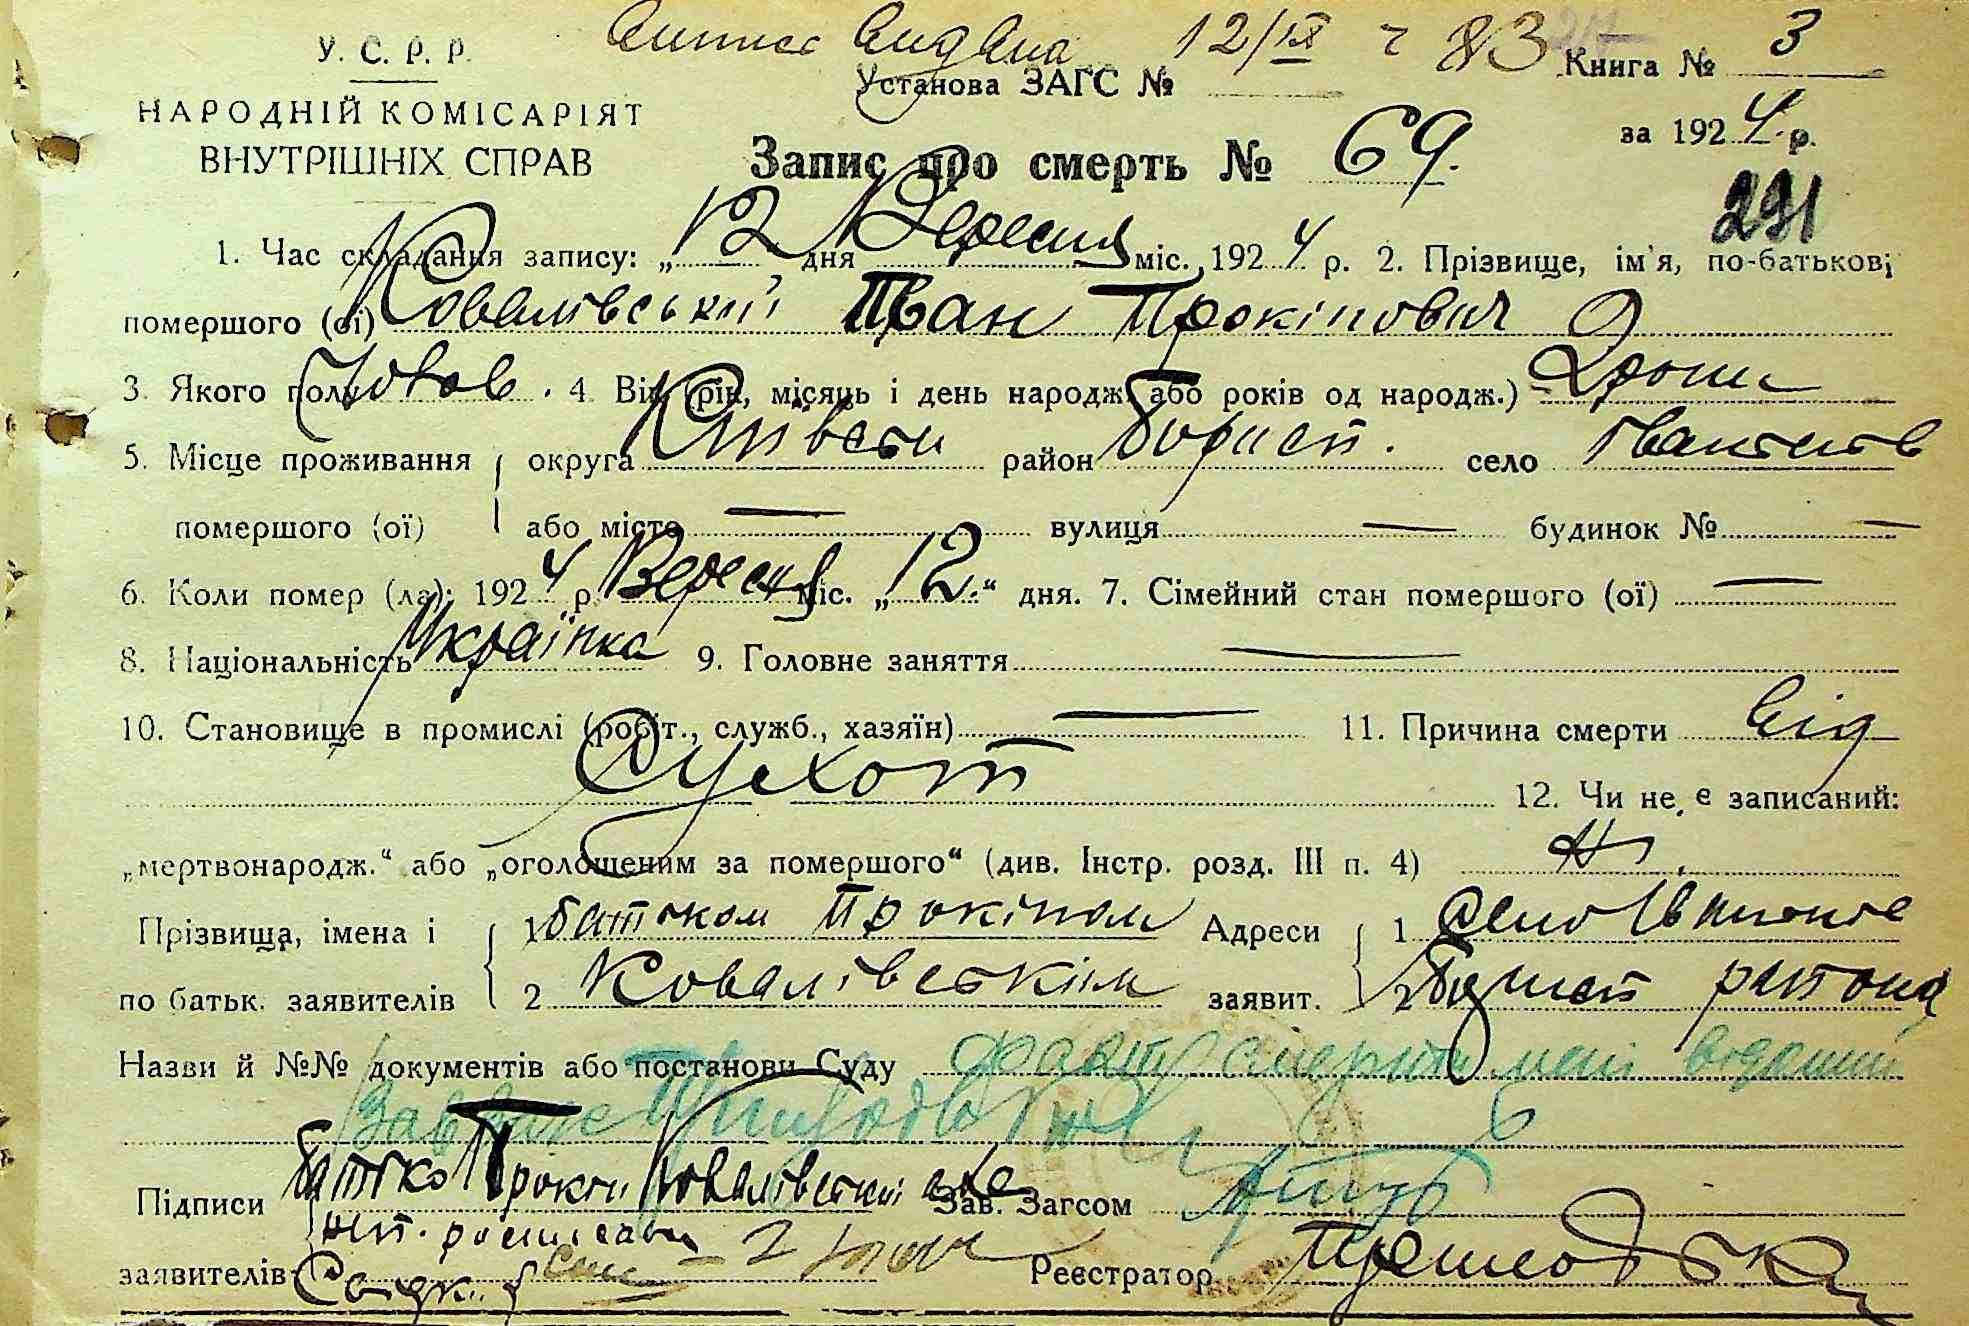 12/IX 83
У. С. Р. Р. Установа ЗАГС № Книга № 3
НАРОДНІЙ КОМІСАРІЯТ за 1924 р.
ВНУТРІШНІХ СПРАВ Запис про смерть № 69.
291
1. Час складання запису: „12 дня Вересня міс. 1924 р. 2. Прізвище, ім'я, по-батькові
помершого (ої) Ковалівський Іван Прокіпович
3. Якого полу Чолов. 4. Вік (рік, місяць і день народж. або років од народж.) 2 роки
5. Місце проживання округа район село
помершого (ої) або місто — вулиця — будинок № —
6. Коли помер (ла): 1924 р. Вересня міс. „12.“ дня. 7. Сімейний стан помершого (ої) —
8. Національність Українка 9. Головне заняття —
10. Становище в промислі (робіт., служб., хазяїн) — 11. Причина смерти Від
Сухот 12. Чи не є записаний:
„мертвонародж.“ або „оголошеним за помершого“ (див. Інстр. розд. III п. 4) Ні.
Прізвища, імена і 1 батьком Прокіпом Адреси 1 Село
по батьк. заявителів 2 Ковалівським заявит. 2 района
Назви й №№ документів або постанови Суду факт смерти
Підписи батько Ковалівський Зав. Загсом
заявителів Реєстратор